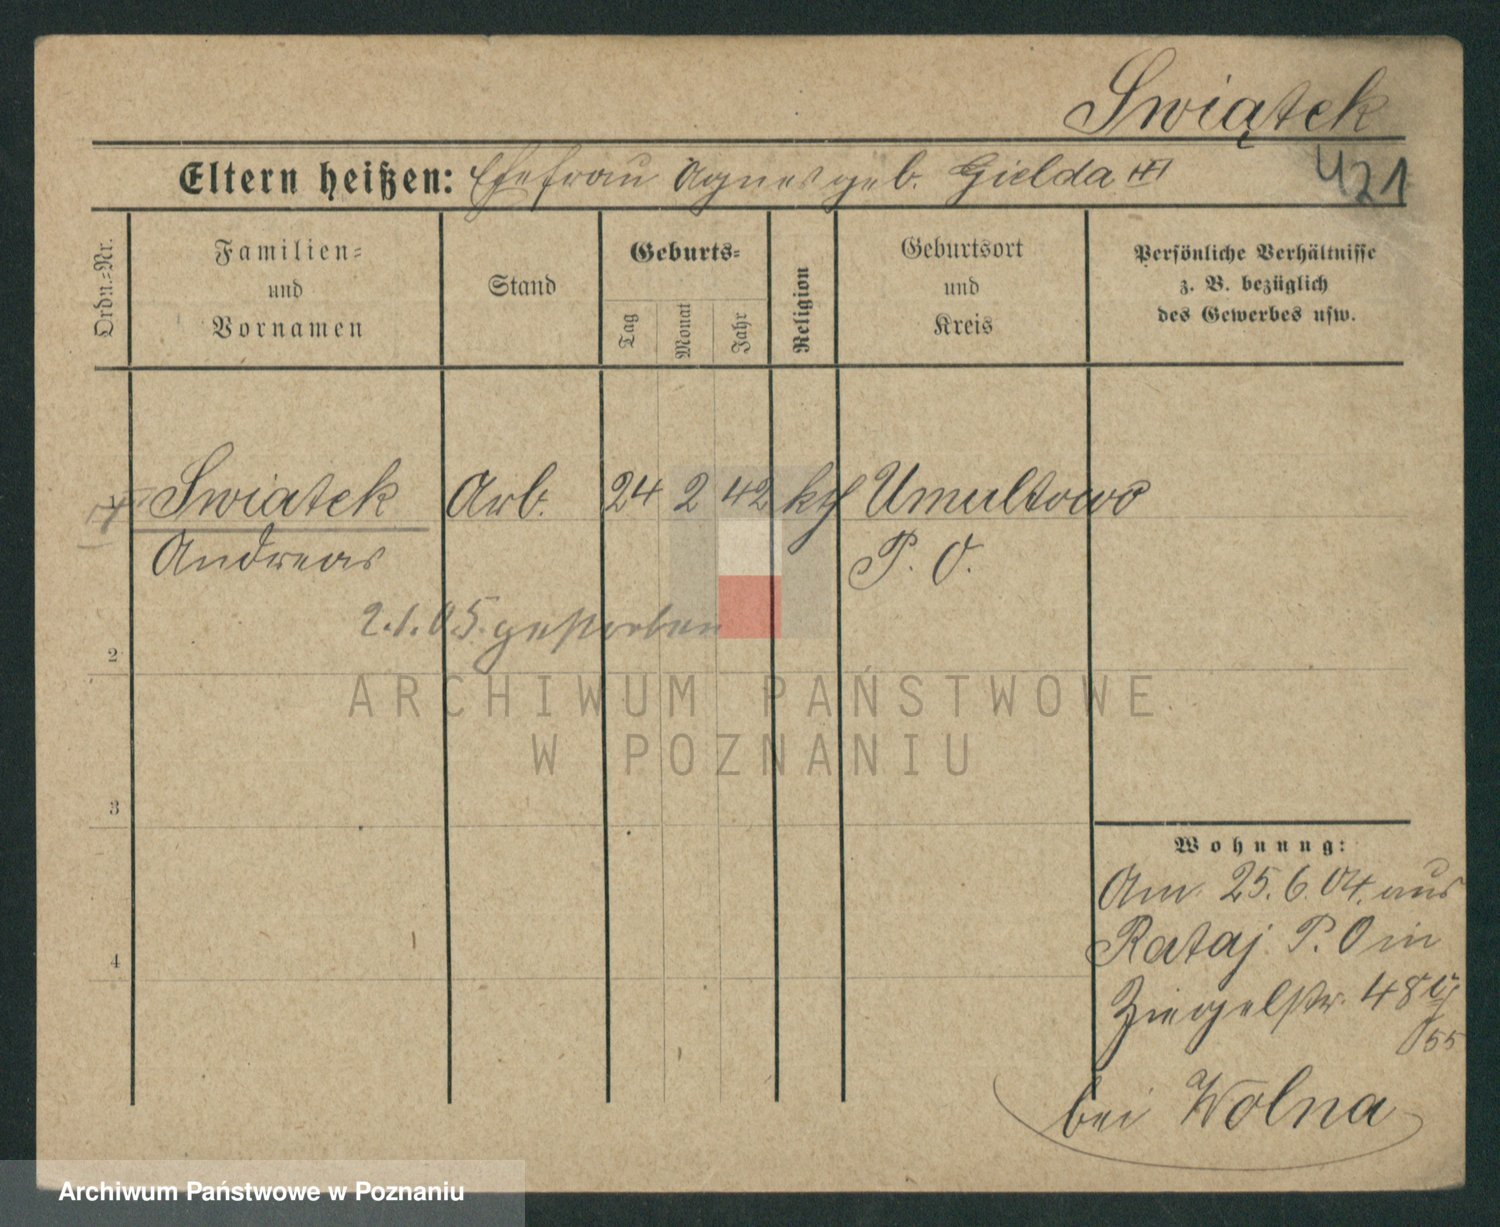 Swiątek
Eltern heißen: Ehefrau Agnes geb. Gielda
421
Ordn.-Nr.
Familien-
und
Vornamen
Stand
Geburts-
Tag
Monat
Jahr
Religion
Geburtsort
und
Kreis
Persönliche Verhältnisse
z. B. bezüglich
des Gewerbes usw.
Swiatek Arb. 24 2 42 kth Umultowo
Andreas P. O.
2.1.05. gestorben
2
ARCHIWUM PAŃSTWOWE
W POZNANIU
3
4
Wohnung:
Am 25.6.04. aus
Rataj P. O in
Ziegelstr. 48
55
bei Wolna
Archiwum Państwowe w Poznaniu